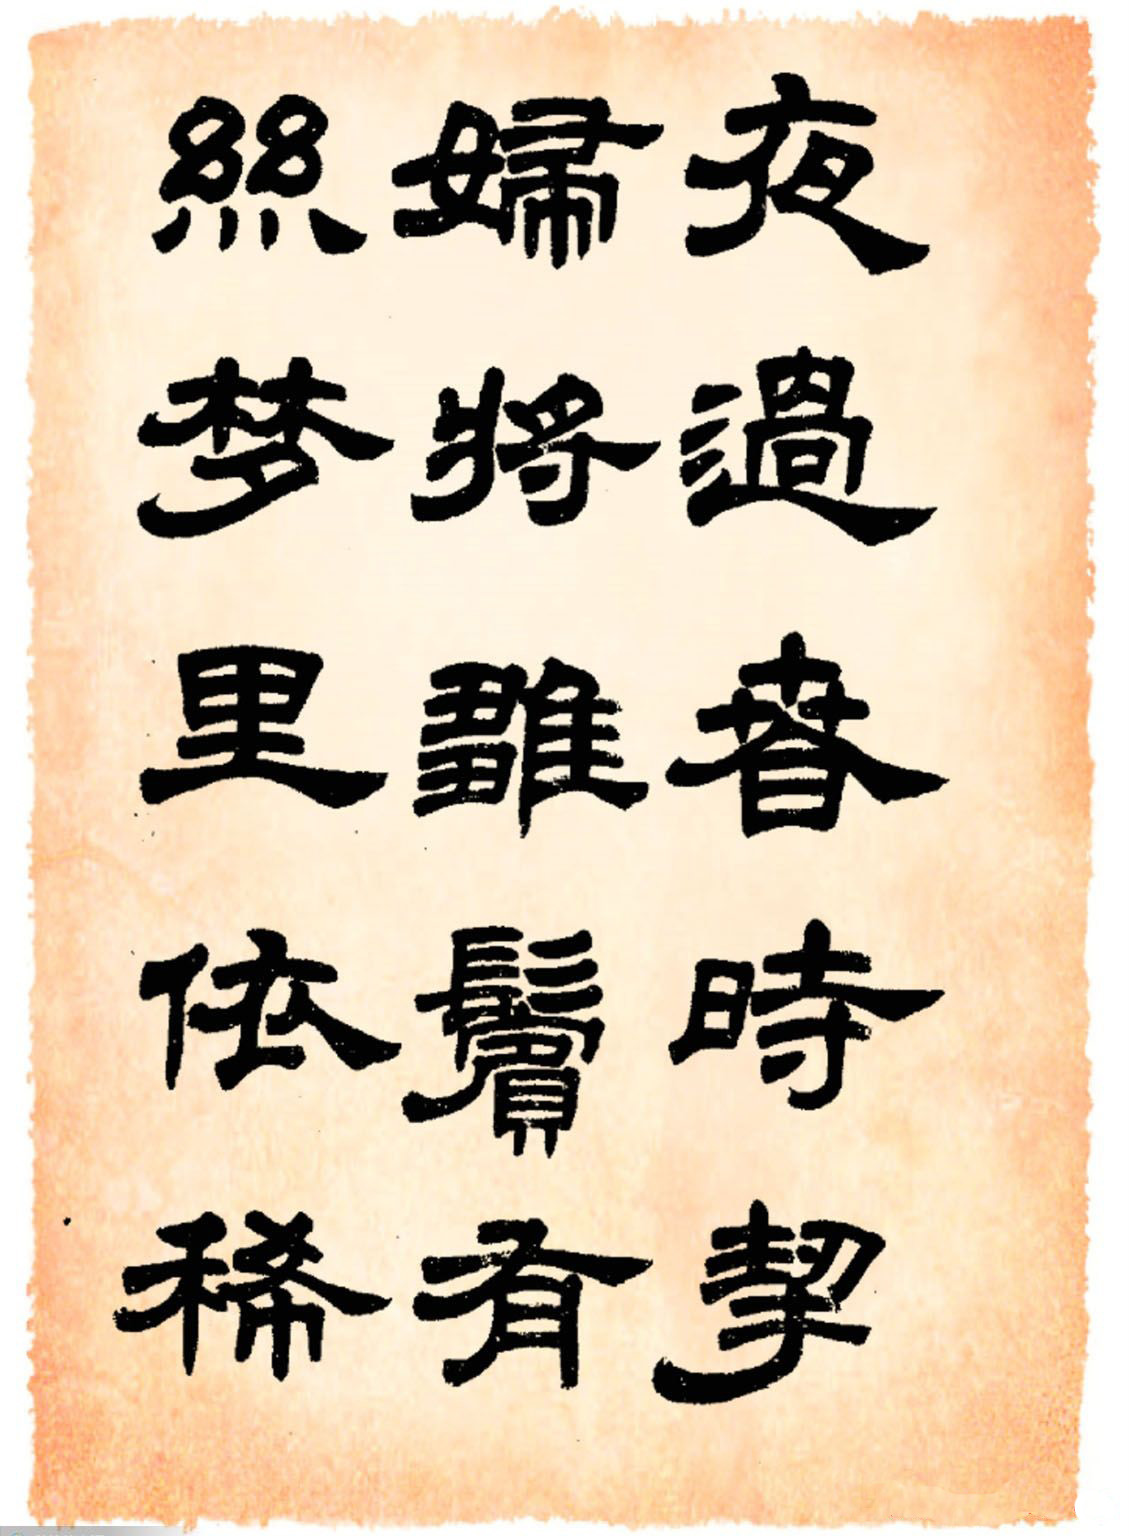 夜過春時挈
婦將雛鬢有
絲梦里依稀